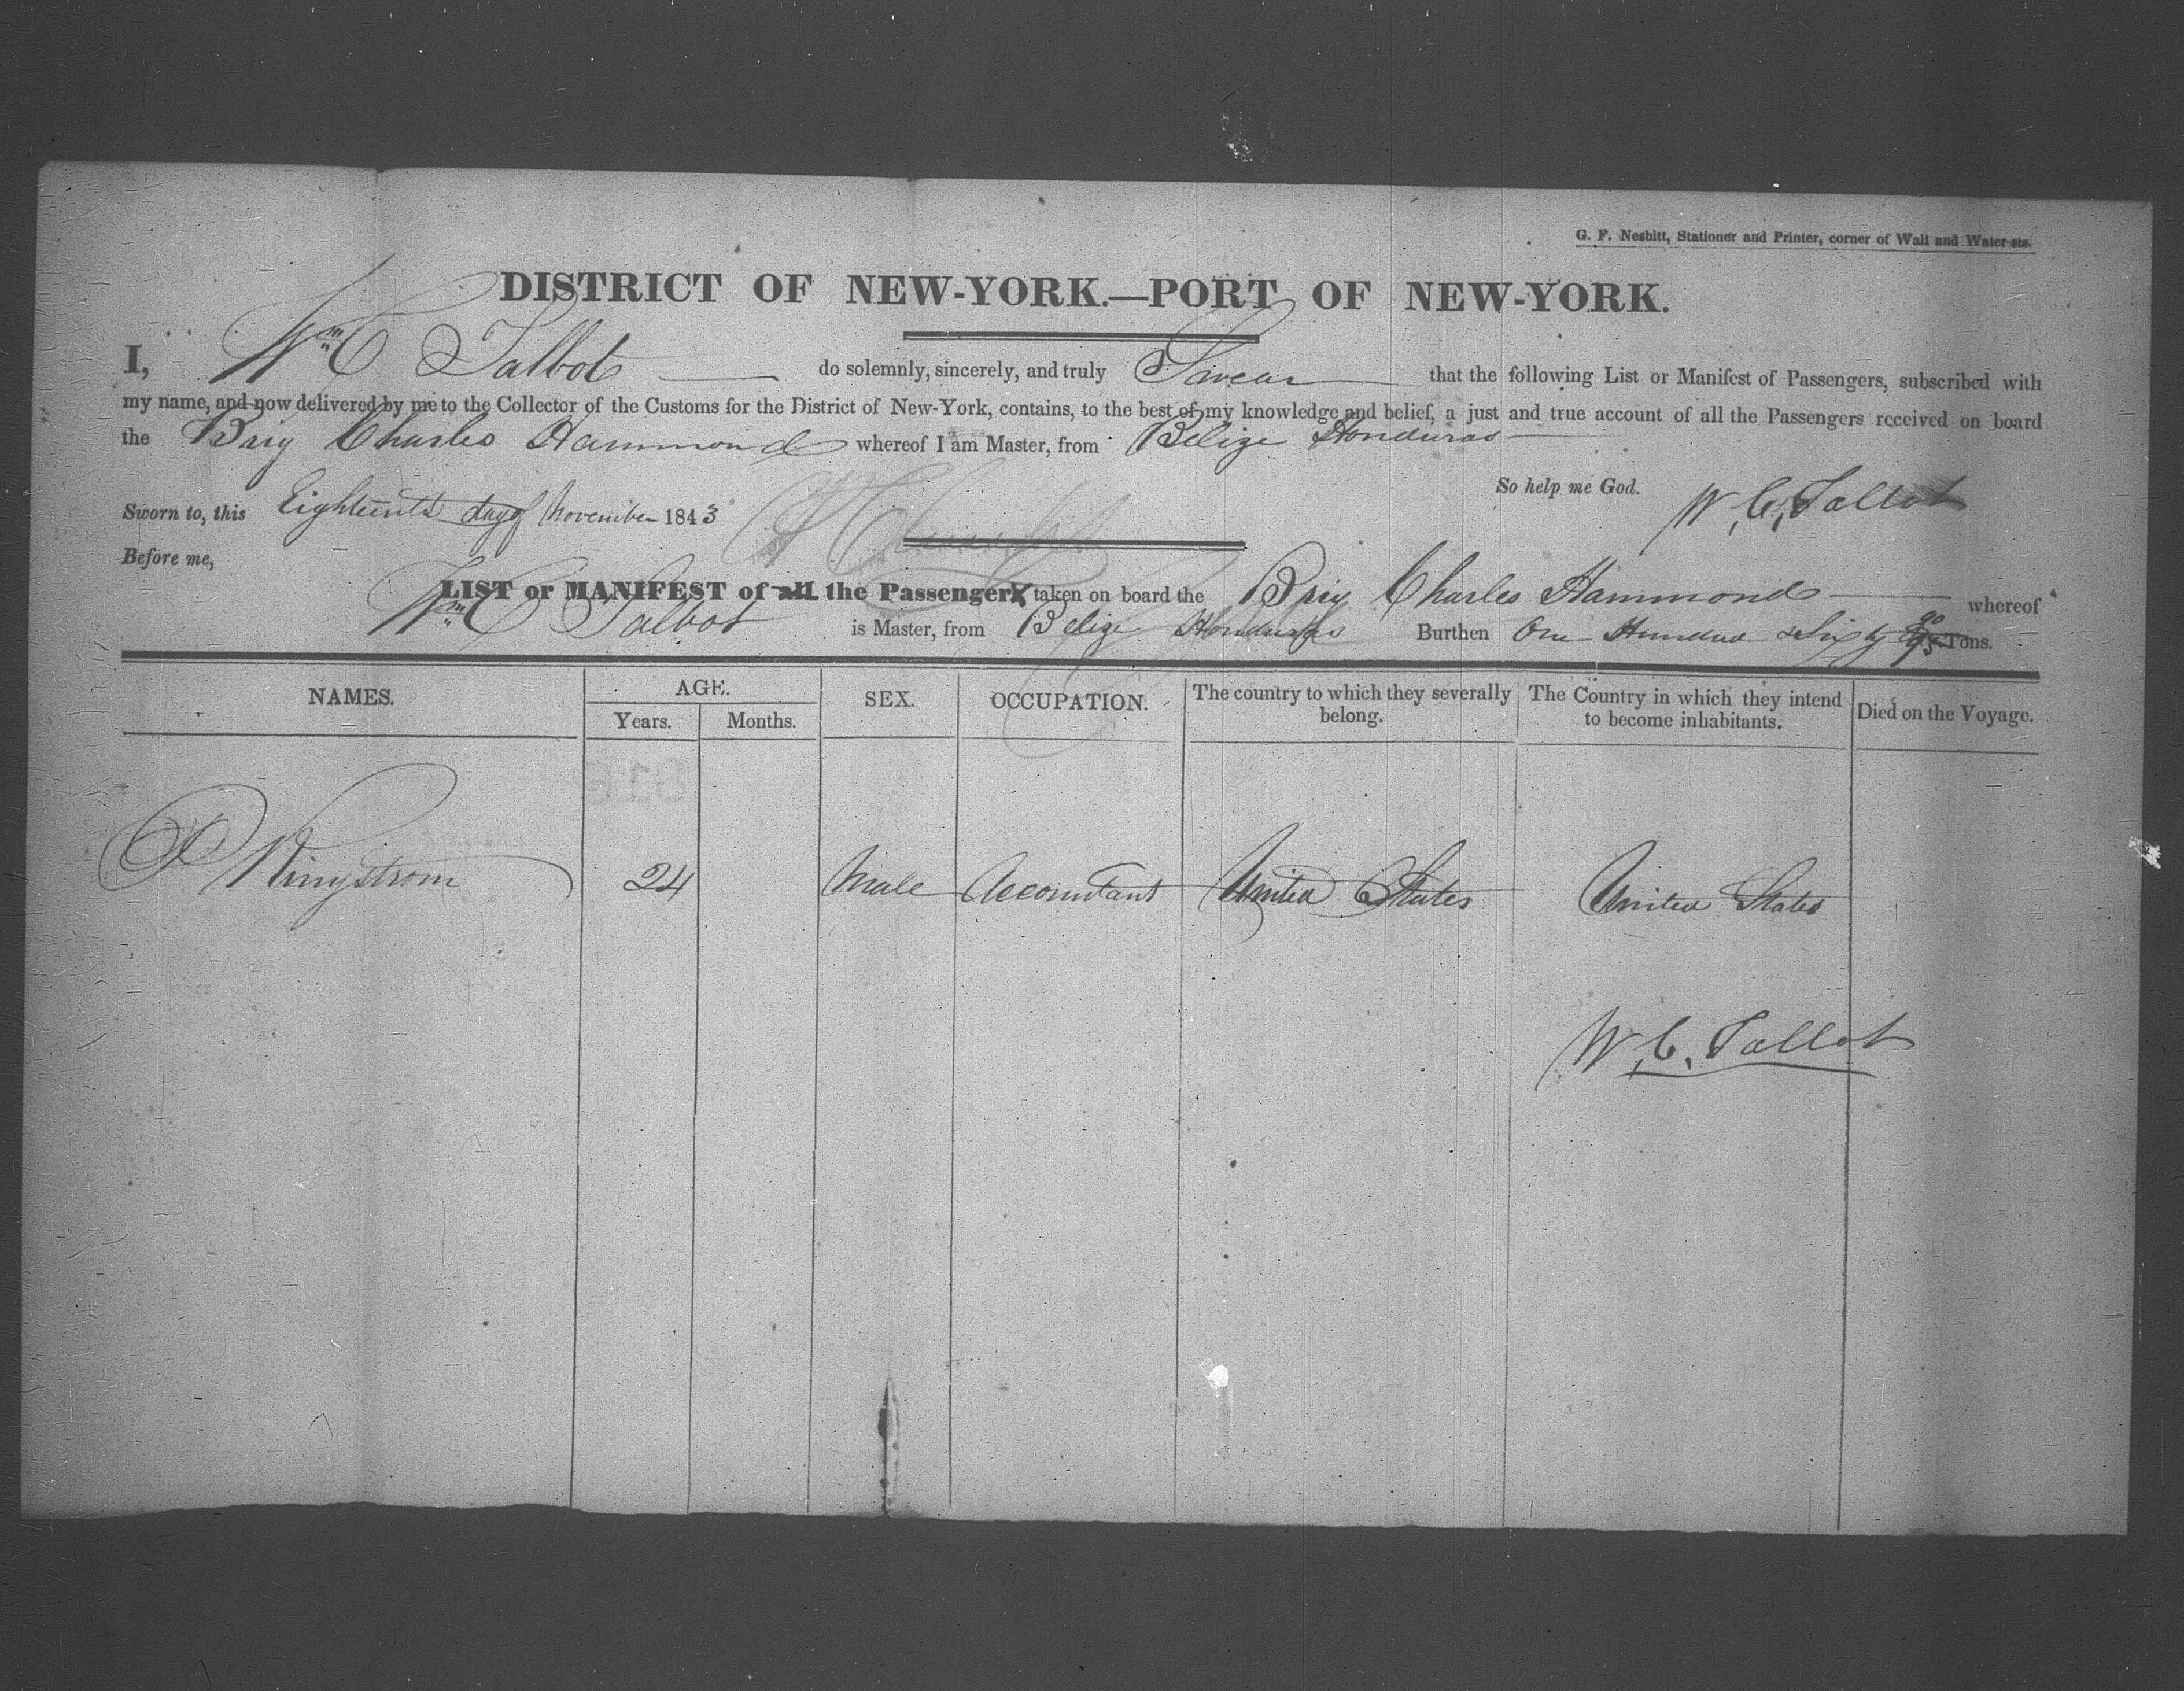 G. F. Nesbitt, Stationer and Printer, corner of Wall and Water-sts.
DISTRICT OF NEW-YORK.—PORT OF NEW-YORK.
I, Wm C Talbot do solemnly, sincerely, and truly Swear that the following List or Manifest of Passengers, subscribed with
my name, and now delivered by me to the Collector of the Customs for the District of New-York, contains, to the best of my knowledge and belief, a just and true account of all the Passengers received on board
the Brig Charles Hammond whereof I am Master, from Belize Honduras
So help me God. W. C. Talbot
Sworn to, this Eighteenth day of November 1843
Before me,
LIST or MANIFEST of all the Passenger taken on board the Brig Charles Hammond whereof
Wm C Talbot is Master, from Belize Honduras Burthen One Hundred & Sixty 90/95 Tons.
NAMES. AGE. SEX. OCCUPATION. The country to which they severally belong. The Country in which they intend to become inhabitants. Died on the Voyage.
Years. Months.
24 Male Accountant United States United States
W. C. Talbot